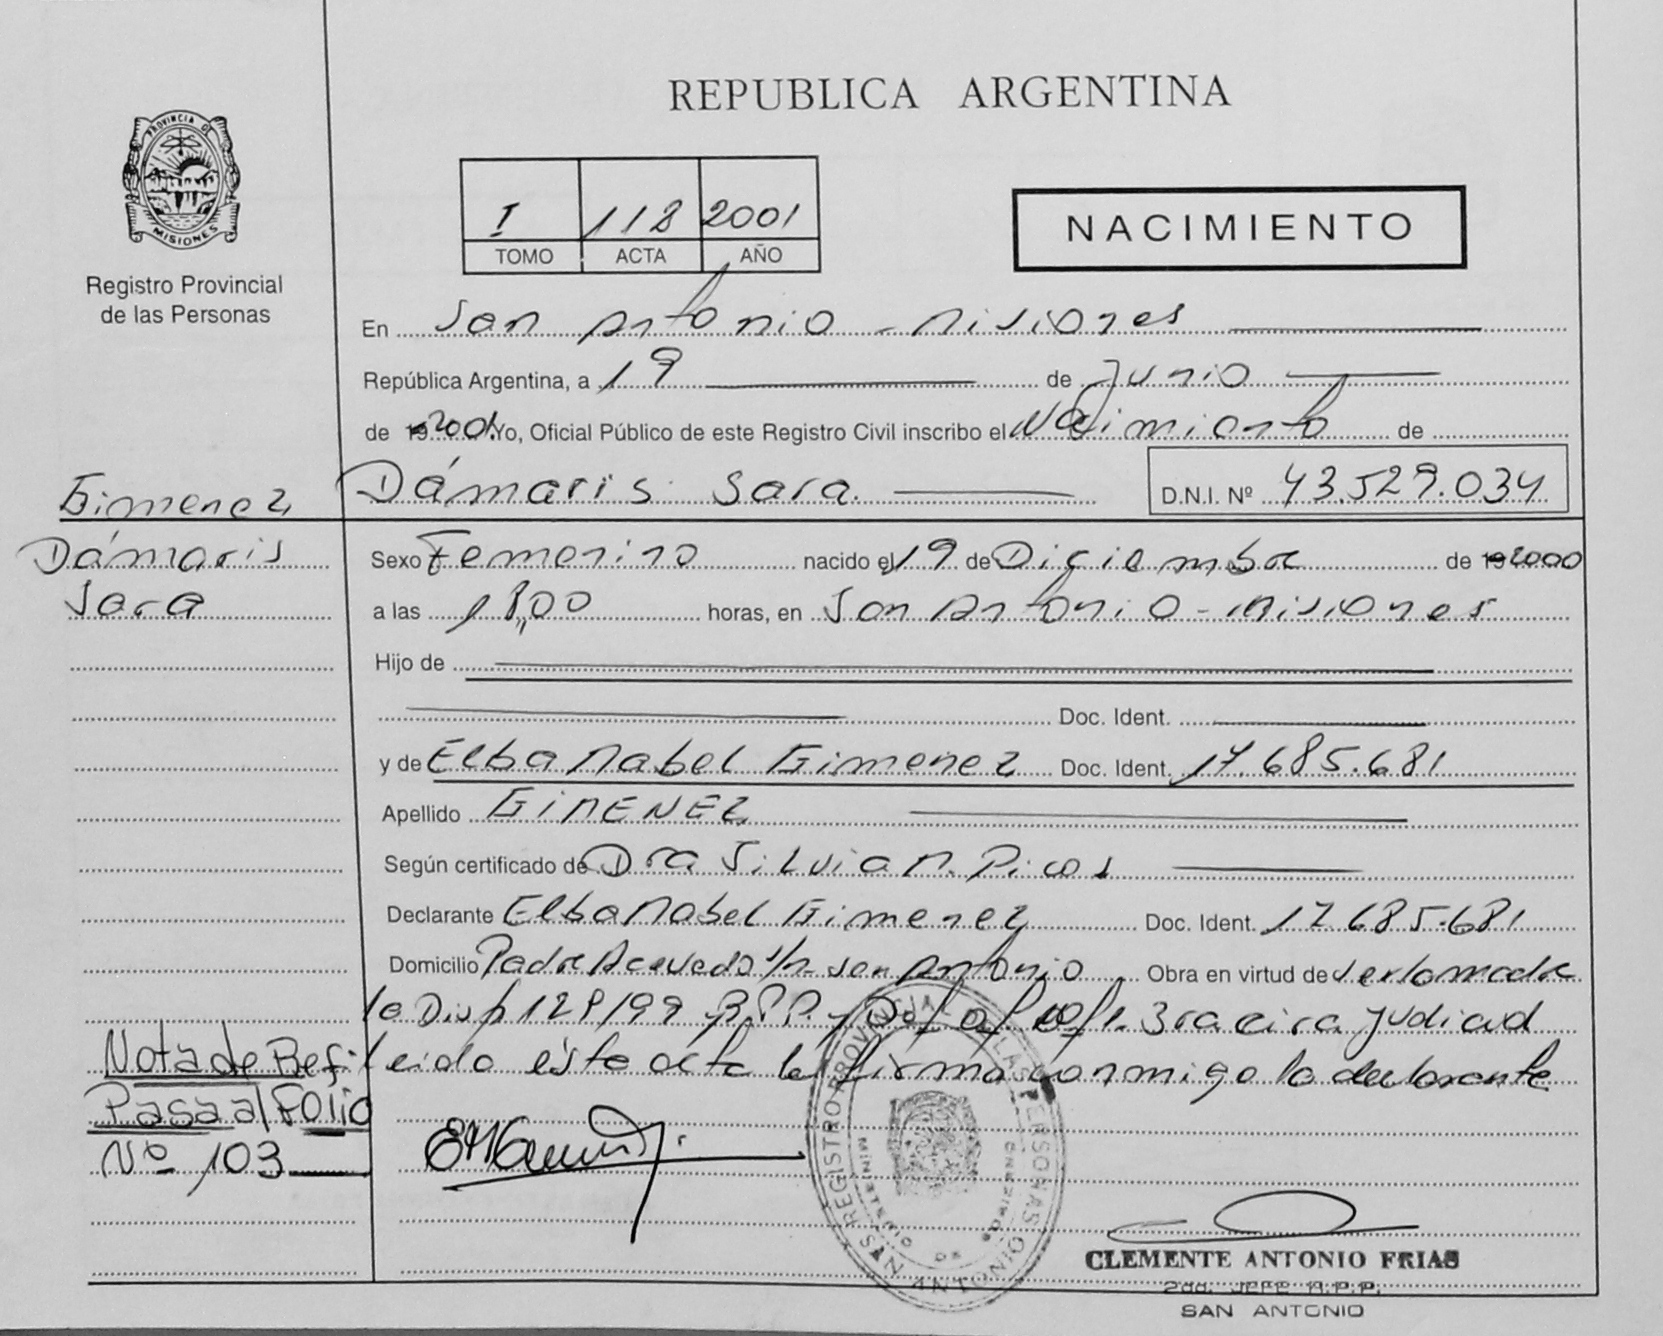 REPUBLICA ARGENTINA
PROVINCIA DE
MISIONES
Registro Provincial
de las Personas
I 118 2001
TOMO ACTA AÑO
NACIMIENTO
En San Antonio - Misiones
República Argentina, a 19 de Junio
de 19 2001. Yo, Oficial Público de este Registro Civil inscribo el Nacimiento de
Gimenez Dámaris Sara D.N.I. Nº 43.529.034
Dámaris
Sara
Sexo Femenino nacido el 19 de Diciembre de 19 2000
a las 18,00 horas, en San Antonio - Misiones
Hijo de
Doc. Ident.
y de Elba Mabel Gimenez Doc. Ident. 17.685.681
Apellido GIMENEZ
Según certificado de Dra Silvia N. Picos
Declarante Elba Mabel Gimenez Doc. Ident. 17.685.681
Domicilio Padre Acevedo s/n - San Antonio Obra en virtud de ser la madre
3ra circ judicial
leida ésta acta la firma conmigo la declarante
Nota de Ref:
Pasa al Folio
Nº 103
REGISTRO PROVINCIAL DE LAS PERSONAS
MINISTERIO DE GOBIERNO
SAN ANTONIO
CLEMENTE ANTONIO FRIAS
2do. JEFE R.P.P.
SAN ANTONIO